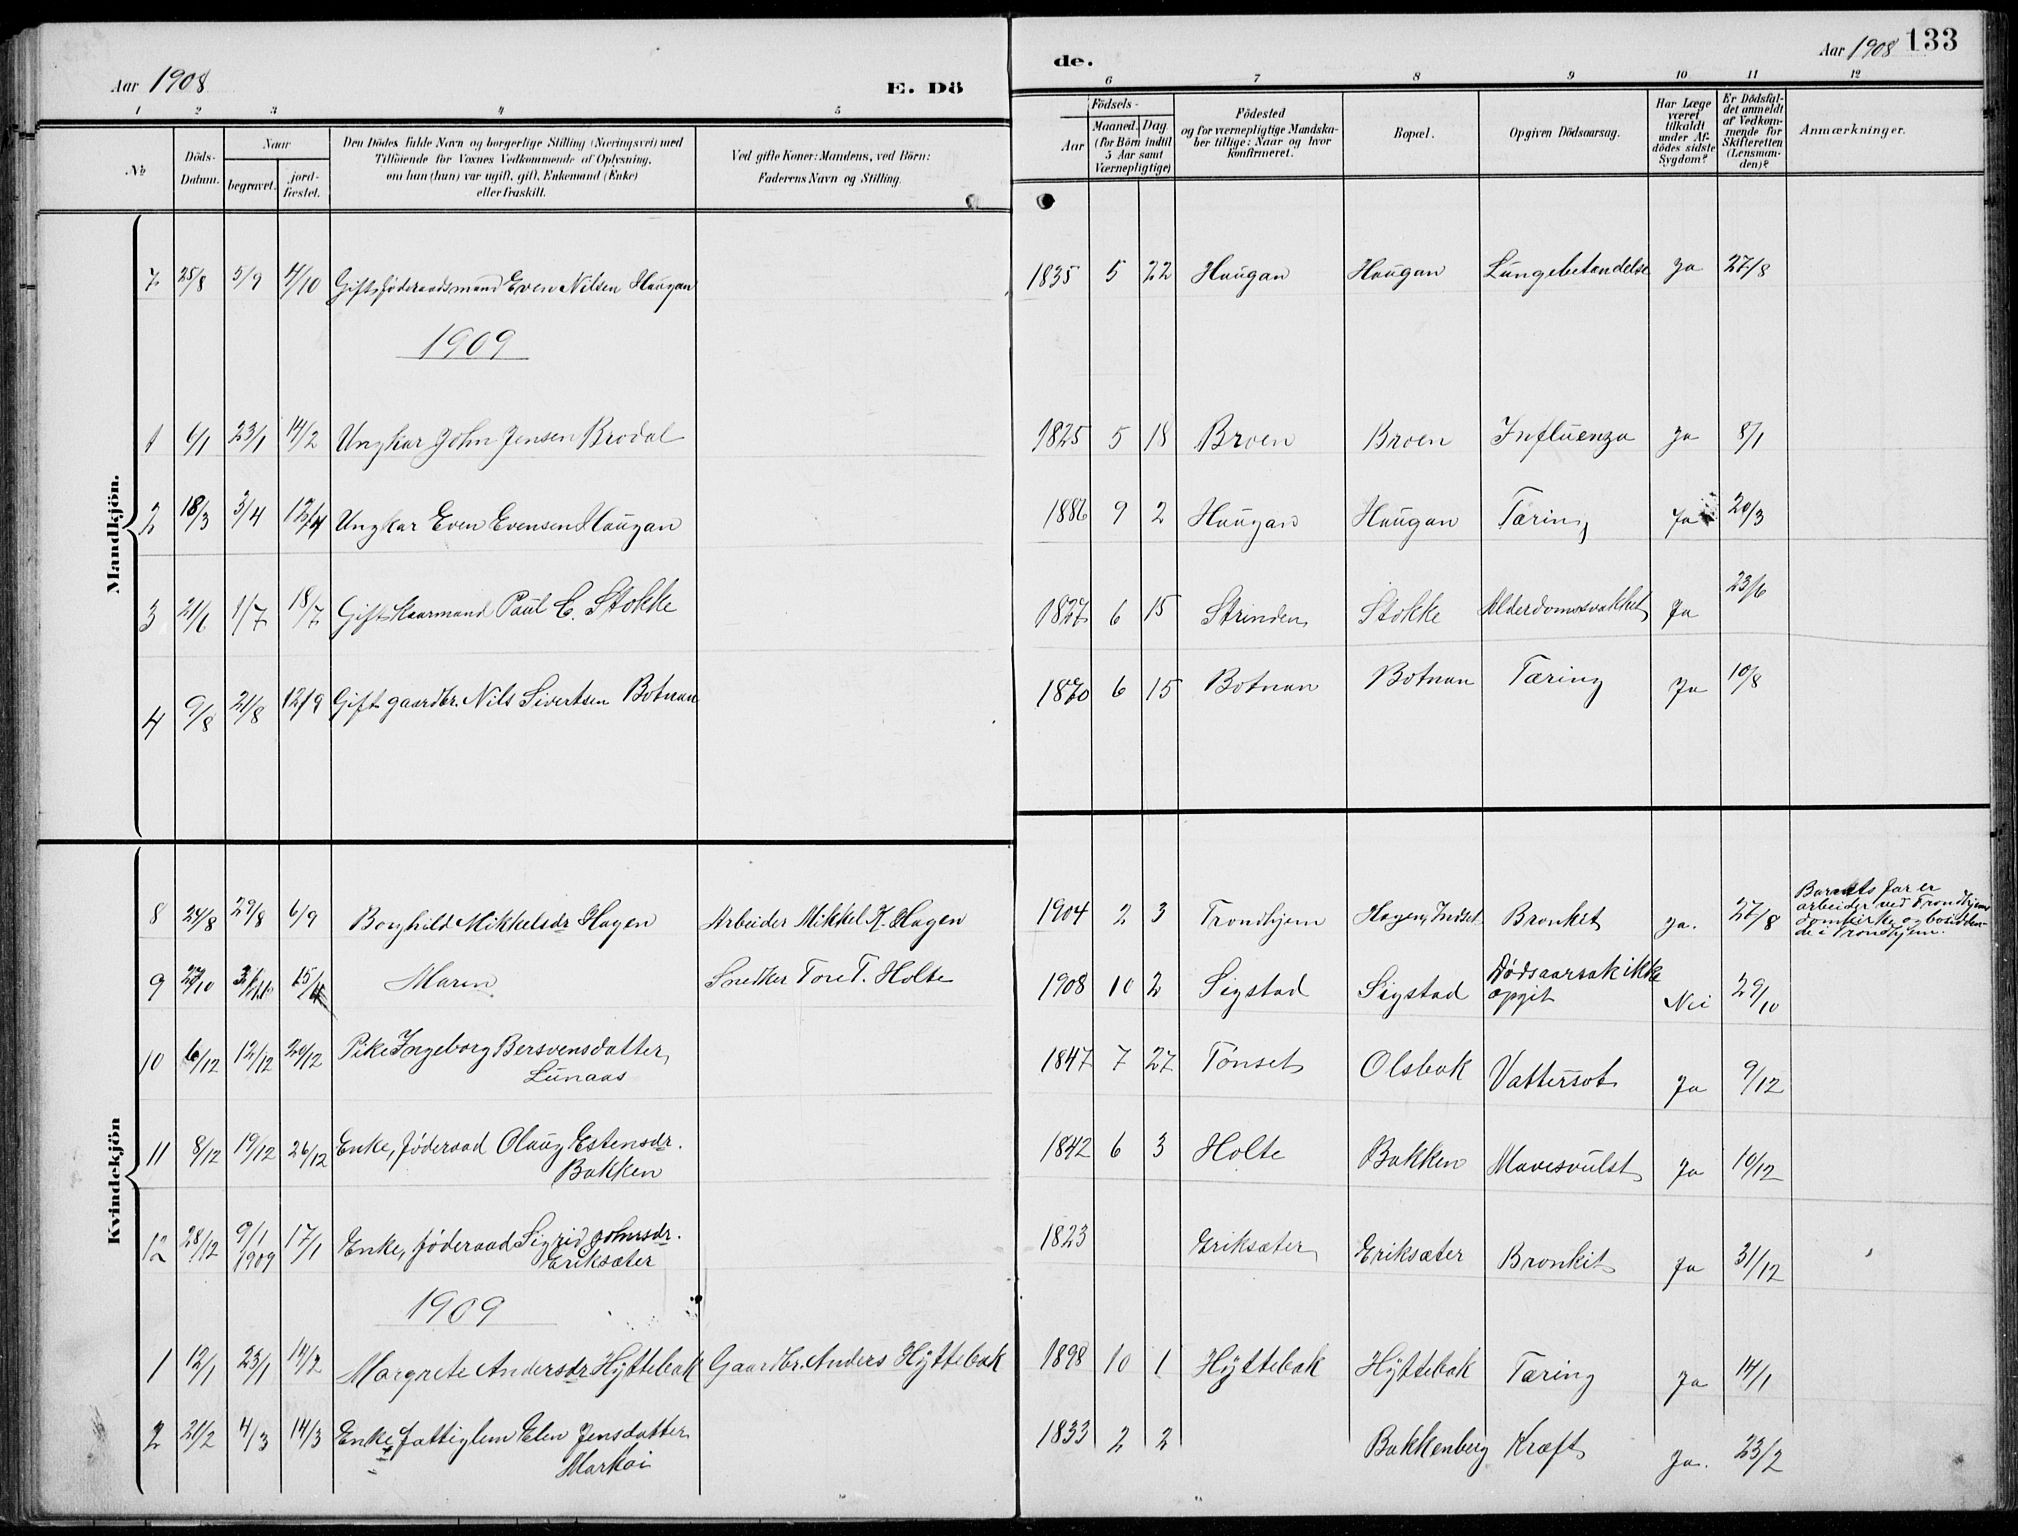 Aar 1908
E. Dö
de.
Aar 1908 133
1 2 3 4 5 6 7 8 9 10 11 12
No
Döds-
Datum.
Naar
begravet.
jord-
fæstet.
Den Dödes fulde Navn og borgerlige Stilling (Næringsvei) med
Tilföiende for Voxnes Vedkommende af Oplysning,
om han (hun) var ugift, gift, Enkemand (Enke)
eller fraskilt.
Ved gifte Koner: Mandens, ved Börn:
Faderens Navn og Stilling.
Födsels-
Aar
Maaned. Dag
(for Börn indtil
5 Aar samt
Værnepligtige)
Födested
og for værnepligtige Mandska-
ber tillige: Naar og hvor
konfirmeret.
Bopæl.
Opgiven Dödsaarsag.
Har Læge
været
tilkaldt
under Af-
dödes sidste
Sygdom?
Er Dödsfal-
det anmeldt
af Vedkom-
mende for
Skifteretten
(Lensman-
den)?
Anmærkninger.
Mandkjön.
7 25/8 5/9 4/10 Gift føderaadsmand Even Nilsen Haugan 1835 5 22 Haugan Haugan Lungebetændelse Ja 27/8
1909
1 6/1 23/1 14/2 Ungkar John Jensen Brodal 1825 5 18 Broen Broen Influenza Ja 8/1
2 18/3 3/4 12/4 Ungkar Even Evensen Haugan 1886 9 2 Haugan Haugan Tæring Ja 20/3
3 21/6 1/7 18/7 Gift Kaarmand Paul C. Stokke 1827 6 15 Strinden Stokke Alderdomssvakhet Ja 23/6
4 9/8 21/8 12/9 Gift gaardbr. Nils Sivertsen Botnan 1870 6 15 Botnan Botnan Tæring Ja 10/8
Kvindekjön
8 24/8 29/8 6/9 Borghild Mikkelsdr Hagen Arbeider Mikkel K. Hagen 1904 2 3 Trondhjem Hagen, Indset Bronkit Ja. 27/8 Barnets far er
arbeider ved Trondhjems
domkirke og bosidden-
de i Trondhjem.
9 27/10 Maren Snedker Tore T. Holte 1908 10 2 Sigstad Sigstad Dødsaarsak ikke
opgit Nei 29/10
10 6/12 12/12 20/12 Pike Ingeborg Bersvensdatter
Lunaas 1847 7 27 Tønset Olsbak Vattersot Ja 9/12
11 8/12 19/12 26/12 Enke, føderaad Olaug Estensdr.
Bakken 1842 6 3 Holte Bakken Mavesvulst Ja 10/12
12 28/12 9/1 1909 17/1 Enke, føderaad Sigrid Johnsdr.
Eriksæter 1823 Eriksæter Eriksæter Bronkit Ja 31/12
1909
1 12/1 23/1 14/2 Margrete Andersdr Hyttebak Gaardbr. Anders Hyttebak 1898 10 1 Hyttebak Hyttebak Tæring Ja 14/1
2 21/2 4/3 14/3 Enke fattiglem Elen Jensdatter
Markøi 1833 2 2 Bakkenberg Kræft Ja. 23/2